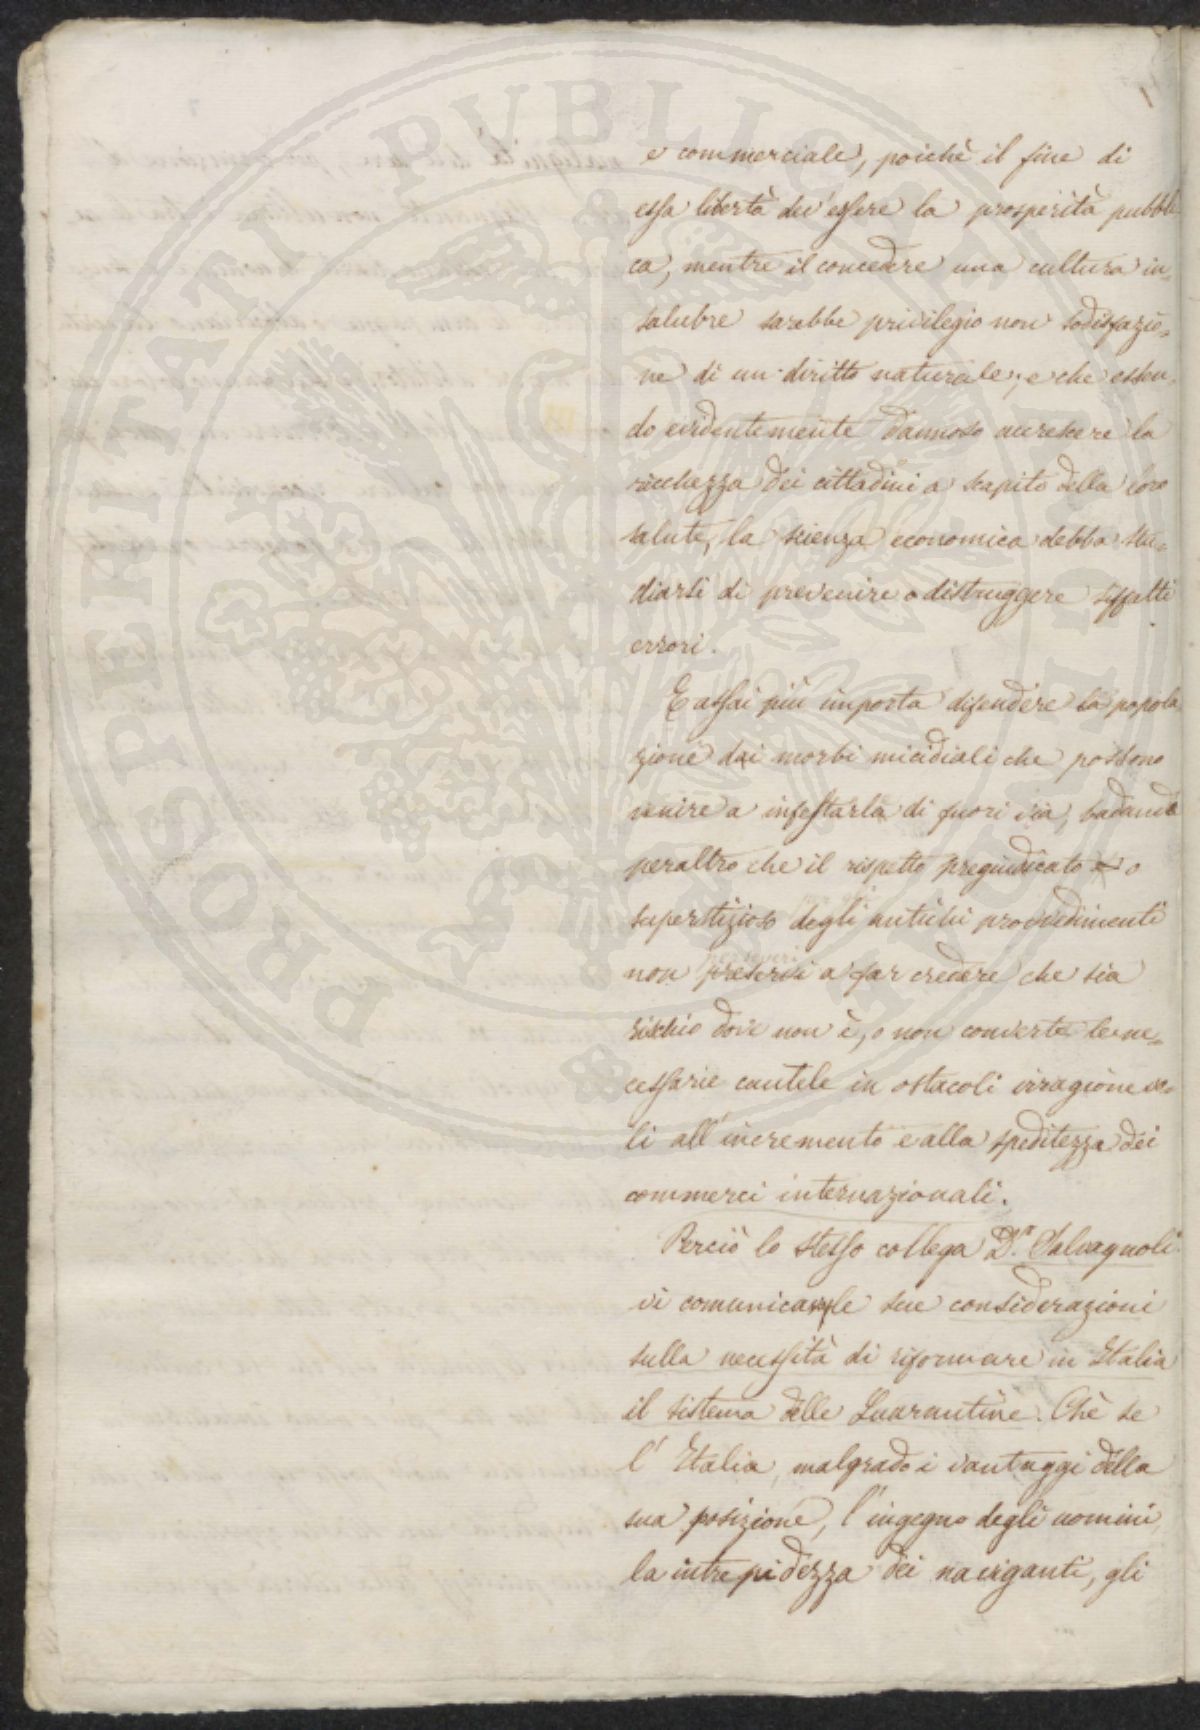 e commerciale, poichè il fine di
essa libertà dev'essere la prosperità pubbli
ca, mentre il concedere una cultura in=
salubre sarebbe privilegio non sodisfazio=
ne di un diritto naturale; e che essen=
do evidentemente dannoso accrescere la
ricchezza dei cittadini a scapito della loro
salute, la scienza economica debba stu=
diarsi di prevenire o distruggere siffatti
errori.
E assai più importa difendere la popola
zione dai morbi micidiali che possono
venire a infestarla di fuori via, badando
peraltro che il rispetto pregiudicato o
superstizioso degli antichi provvedimenti
perseveri
non a far credere che sia
rischio dove non è, o non converta le ne=
cessarie cautele in ostacoli irragionevo=
li all'incremento e alla speditezza dei
commerci internazionali.
Perciò lo stesso collega D.r Salvagnoli
vi comunica le sue considerazioni
sulla necessità di riformare in Italia
il sistema delle Quarantine. Chè se
l'Italia, malgrado i vantaggi della
sua posizione, l'ingegno degli uomini,
la intrepidezza dei naviganti, gli
PROSPERITATI PUBLICAE AUGENDAE